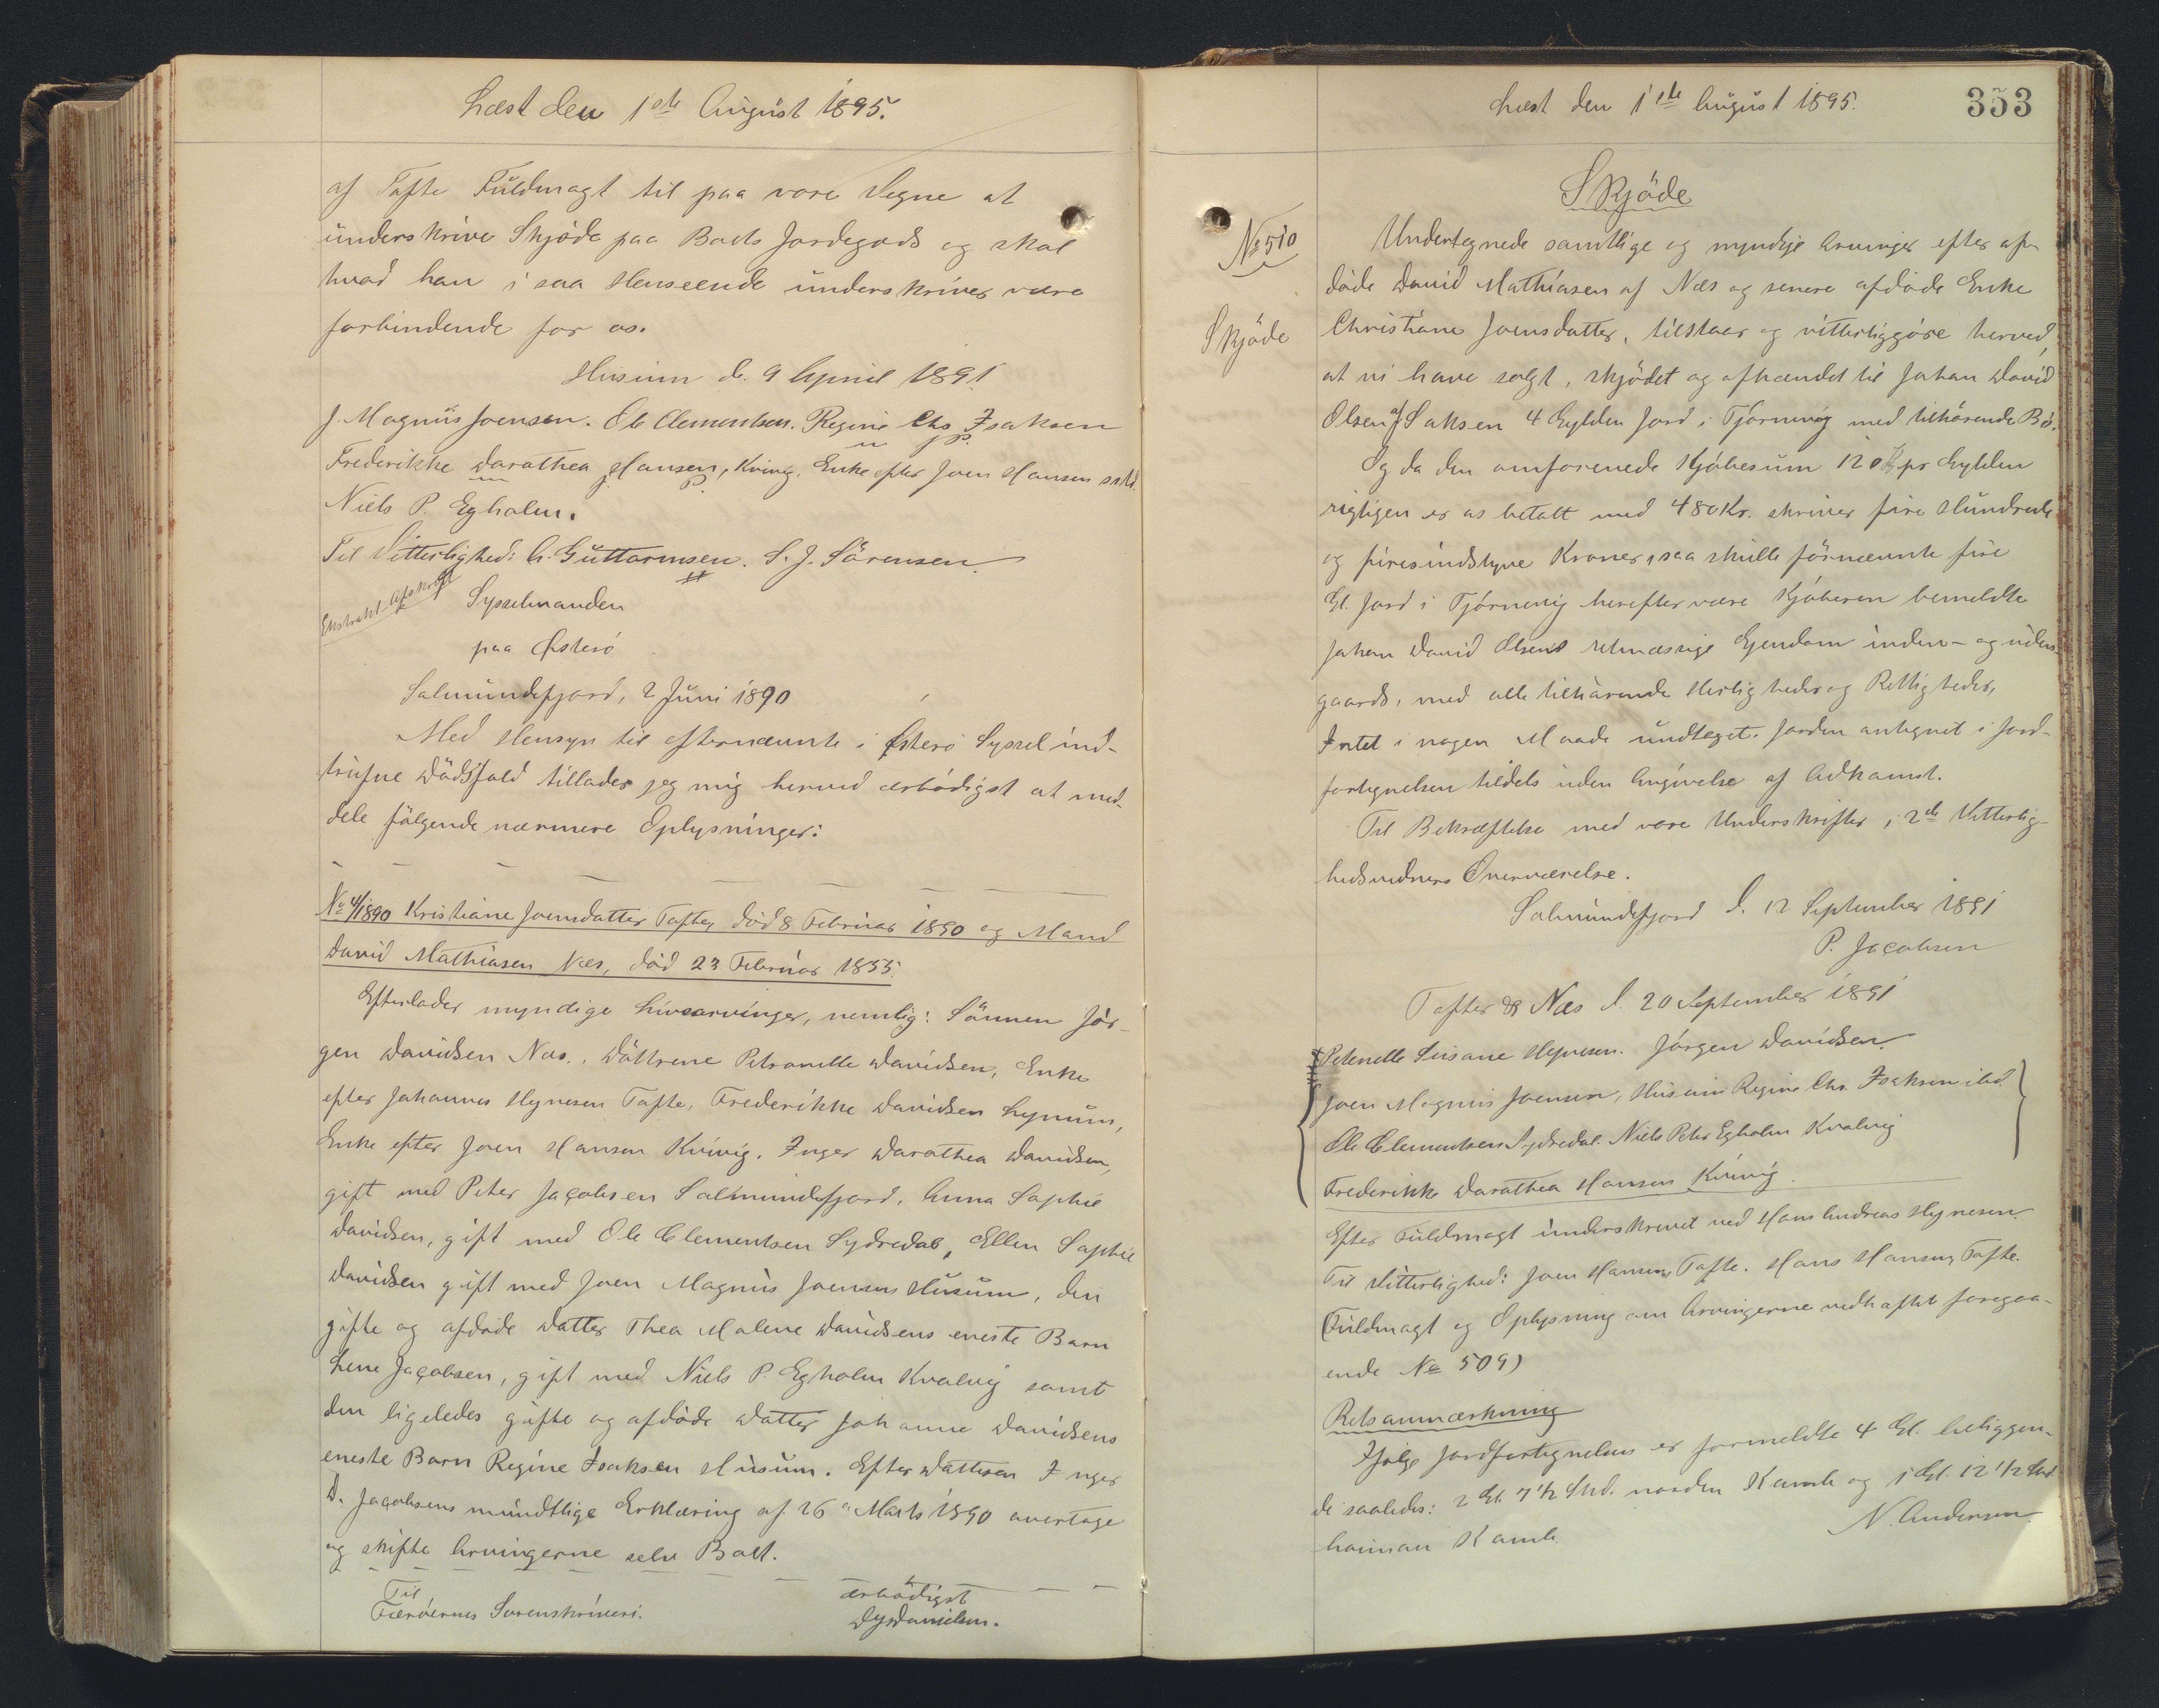 Læst den 1ste August 1895.
af Tofte Fuldmagt til paa vore Vegne at
underskrive Skjøde paa Boets Jordegods og skal
hvad han i saa Henseende underskriver være
forbindende for os.
Husum d. 9 April 1891.
J. Magnus Joensen. Ole Clementsen. Regine Chs Isaksen
Frederikke Darathea Hansen, Kvivig. Enke efter Joen Hansen sstd.
Niels P. Egholm.
Til Vitterlighed: G. Guttormsen. S. J. Sörensen
Ekstrakt-Afskrift
Sysselmanden
paa Østerö
Salmundefjord, 2 Juni 1890
Med Hensyn til efternævnte i Østerö Syssel ind-
trufne Dödsfald tillader jeg mig herved ærbödigst at med-
dele fölgende nærmere Oplysninger:
No 4/1890 Kristiane Joensdatter Tofte, död 8 Februar 1890 og Mand
David Mathiasen Næs, död 23 Februar 1855.
Efterlader myndige Livsarvinger, nemlig: Sönnen Jör-
gen Davidsen Næs., Döttrene Petronelle Davidsen, Enke
efter Johannes Heynesen Tofte, Frederikke Davidsen Lynum,
Enke efter Joen Hansen Kvivig. Inger Darathea Davidsen,
gift med Peter Jacobsen Salmundefjord, Anna Sophie
Davidsen, gift med Ole Clementsen Sydredal, Ellen Sophie
Davidsen gift med Joen Magnus Joensen Husum, den
gifte og afdöde Datter Thea Malene Davidsens eneste Barn
Lene Jacobsen, gift med Niels P. Egholm Kvalvig samt
den ligeledes gifte og afdöde Datter Johanne Davidsens
eneste Barn Regine Isaksen Husum. Efter Datteren Inger
D. Jacobsens mundtlige Erklæring af 26 Marts 1890 overtage
og skifte Arvingerne selv Boet.
Til
Færöernes Sorenskriveri.
ærbödigst
Danielsen.
Læst den 1ste August 1895.
353
Skjöde
No 510
Skjöde
Undertegnede samtlige og myndige Arvinger efter af-
döde David Mathiasen af Næs og senere afdöde Enke
Christiane Joensdatter, tilstaar og vitterliggöre herved,
at vi have solgt, skjödet og afhændet til Johan David
Olsen af Saksen 4 Gylden Jord i Tjörnevig med tilhörende Bö.
Og da den omforenede Kjöbesum 120 Kr pr Gylden
rigtigen er os betalt med 480 Kr. skriver fire Hundrede
og firesindstyve Kroner, saa skulle förnævnte fire
Gl. Jord i Tjörnevig herefter være Kjöberen bemeldte
Johan David Olsens retmæssige Ejendom inden- og uden-
gaards, med alle tilhörende Herligheder og Rettigheder,
Intet i nogen Maade undtaget. Jorden antegnet i Jord-
fortegnelsen tildels uden Angivelse af Adkomst.
Til Bekræftelse med vore Underskrifter i 2de Vitterlig-
hedsvidners Overværelse.
Salmundefjord d. 12 September 1891
P. Jacobsen
Tofter og Næs d. 20 September 1891
Petenelle Susane Heynesen. Jörgen Davidsen.
Joen Magnus Joensen, Husum Regine Chr. Isaksen ibd.
Ole Clementsen Sydredal. Niels Peter Egholm Kvalvig
Frederikke Darathea Hansen Kvivig.
Efter Fuldmagt underskrevet ved Hans Andreas Heynesen.
Til Vitterlighed: Joen Hansen, Tofte. Hans Hansen, Tofte.
(Fuldmagt og Oplysning om Arvingerne vedhæftet foregaa-
ende No 509)
Retsanmærkning
Ifölge Jordfortegnelsen er formeldte 4 Gl. beliggen-
de saaledes: 2 Gl. 7 1/2 Skd. norden Kamb og 1 Gl. 12 1/2 Skd.
heiman Kamb.
N. Andersen.